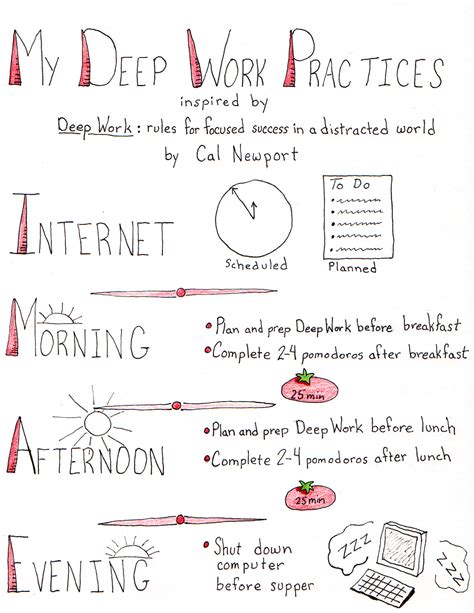 MY DEEP WORK PRACTICES
inspired by
Deep Work: rules for focused success in a distracted world
by Cal Newport
INTERNET
Scheduled
To Do
Planned
MORNING
• Plan and prep Deep Work before breakfast
• Complete 2-4 pomodoros after breakfast
25 min
AFTERNOON
• Plan and prep Deep Work before lunch
• Complete 2-4 pomodoros after lunch
25 min
EVENING
• Shut down
computer
before supper
ZZZ
ZZZ